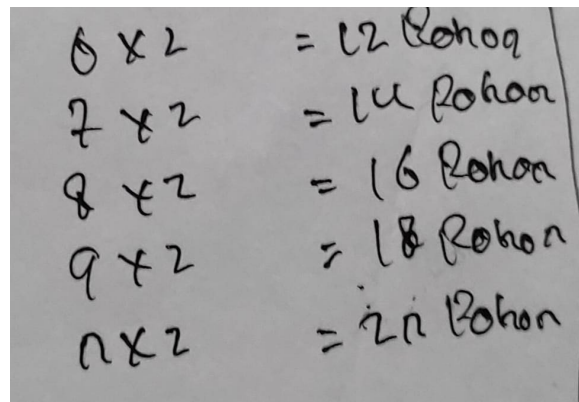 6 x 2 = 12 Pohon
7 x 2 = 14 Pohon
8 x 2 = 16 Pohon
9 x 2 = 18 Pohon
n x 2 = 2n Pohon